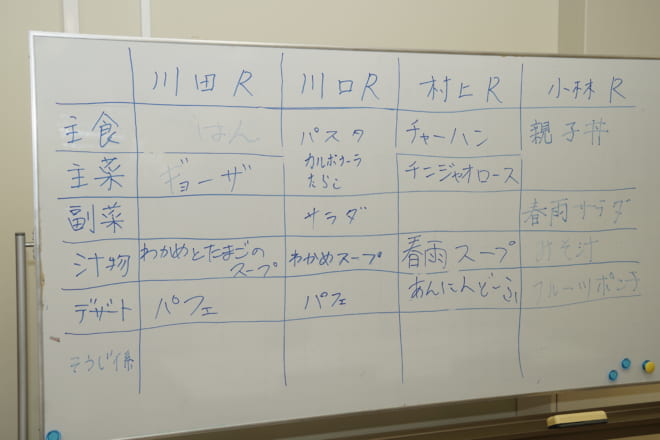 川田R 川口R 村上R 小林R
主食 はん パスタ チャーハン 親子丼
主菜 ギョーザ カルボナーラ チンジャオロース
たらこ
副菜 サラダ 春雨サラダ
汁物 わかめとたまごの わかめスープ 春雨スープ みそ汁
スープ
デザート パフェ パフェ あんにんどーふ フルーツポンチ
そうじ係